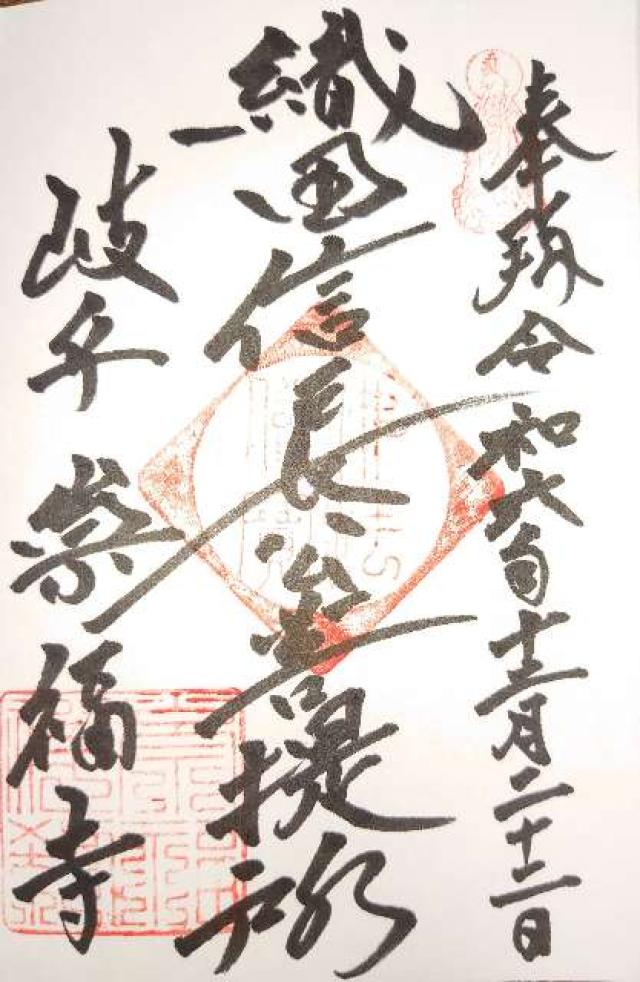 奉拝 令和六年十二月二十二日
織田信長公菩提所
岐阜 崇福寺